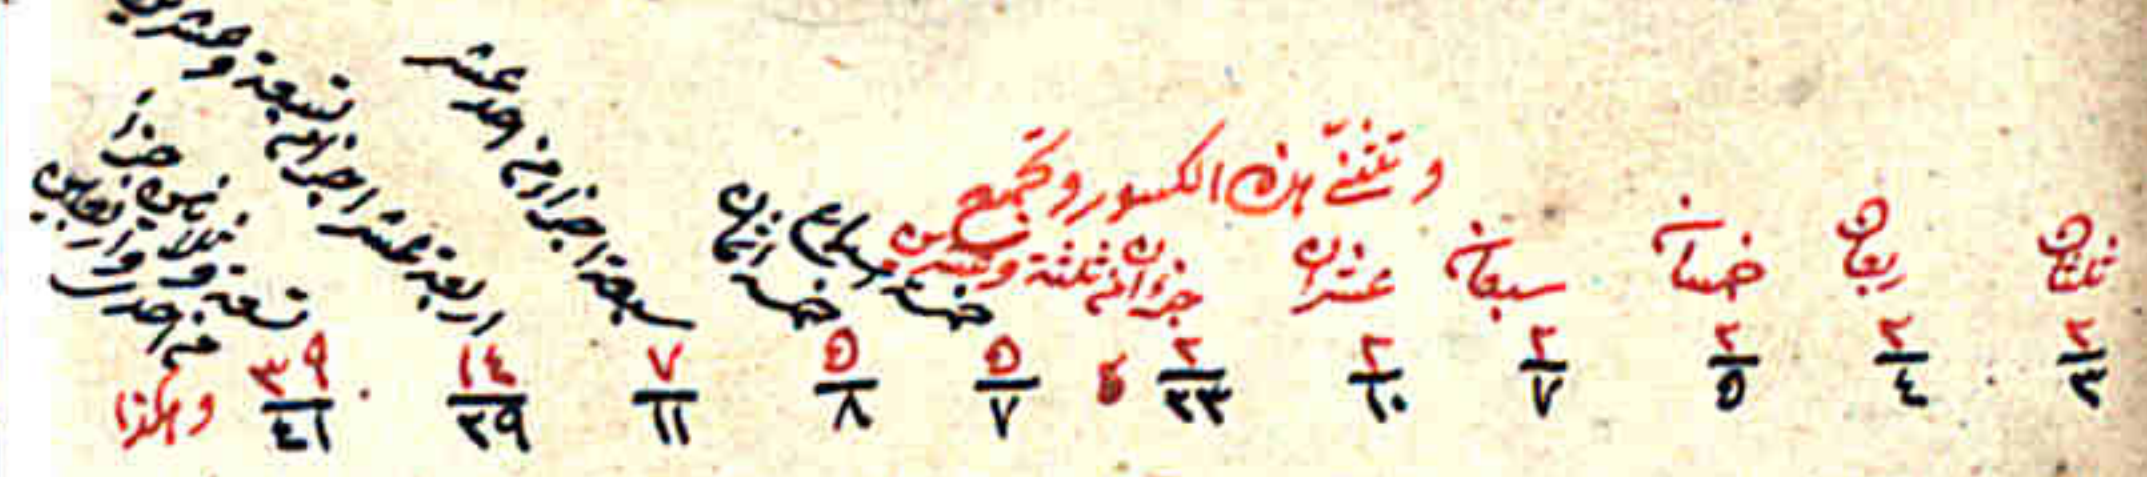 وتثنى هذه الكسور وتجمع
ثلثان ربعان خمسان سبعان عشران جزءان من ثلثة وعشرين خمسة اسباع خمسة اثمان سبعة اجزاء من احد عشر اربعة عشر اجزاء من تسعة وعشرين تسعة وثلاثين جزأ من احدى واربعين
٢/٣ ٢/٤ ٢/٥ ٢/٧ ٢/١٠ ٢/٢٣ ٥/٧ ٥/٨ ٧/١١ ١٤/٢٩ ٣٩/٤١ وهكذا